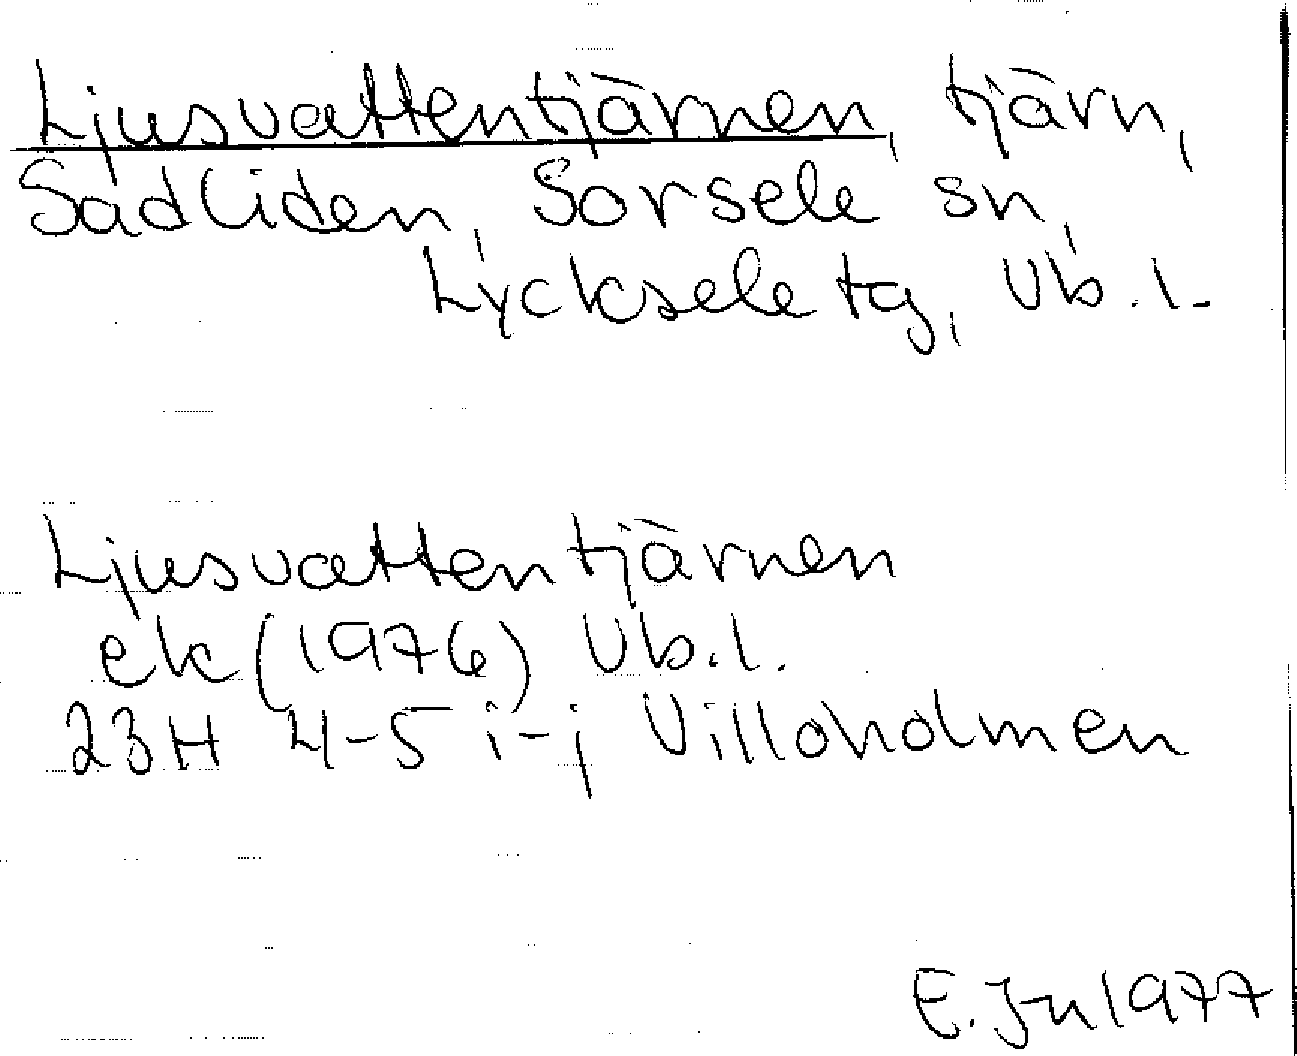 Ljusvattentjärnen, tjärn,
Sadliden, Sorsele sn,
Lycksele tg, Vb.l.
Ljusvattentjärnen
ek (1976) Vb.l.
23H 4-5 i-j Villoholmen
E. Jn 1977